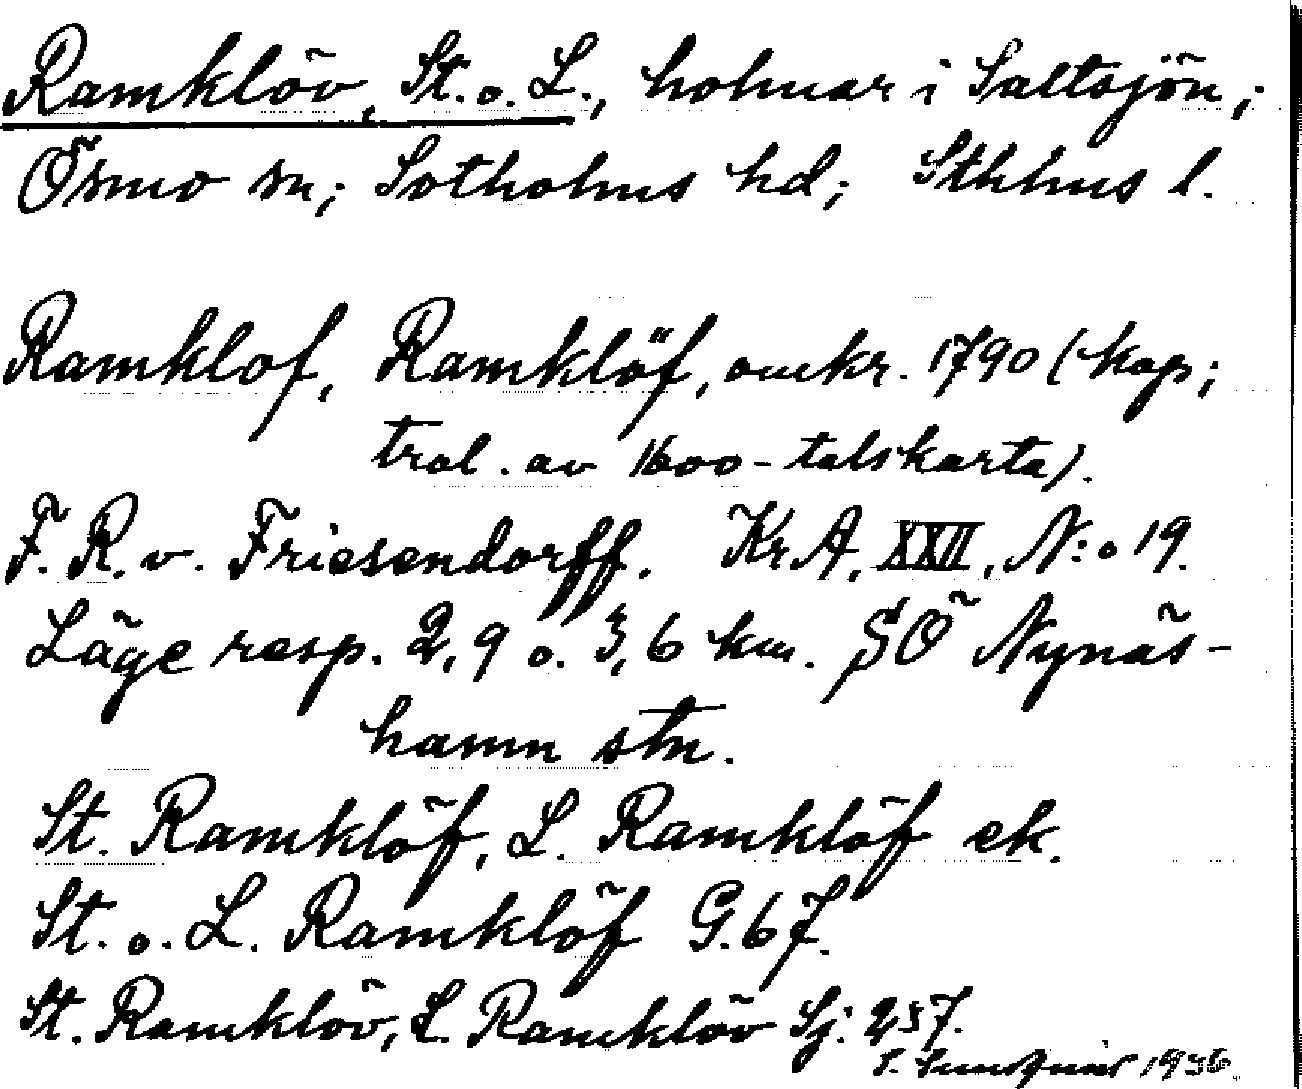 Ramklöv, St. o. L., holmar i Saltsjön;
Ösmo sn; Sotholms hd; Sthlms l.
Ramklof, Ramklöf, omkr. 1790 (kop;
trol. av 1600-talskarta).
F. R. v. Friesendorff. Kr.A. XXII, N:o 19.
Läge resp. 2,9 o. 3,6 km. SÖ Nynäs-
hamn stn.
St. Ramklöf, L. Ramklöf ek.
St. o. L. Ramklöf G. 67.
St. Ramklöv, L. Ramklöv Sj. 257.
1936